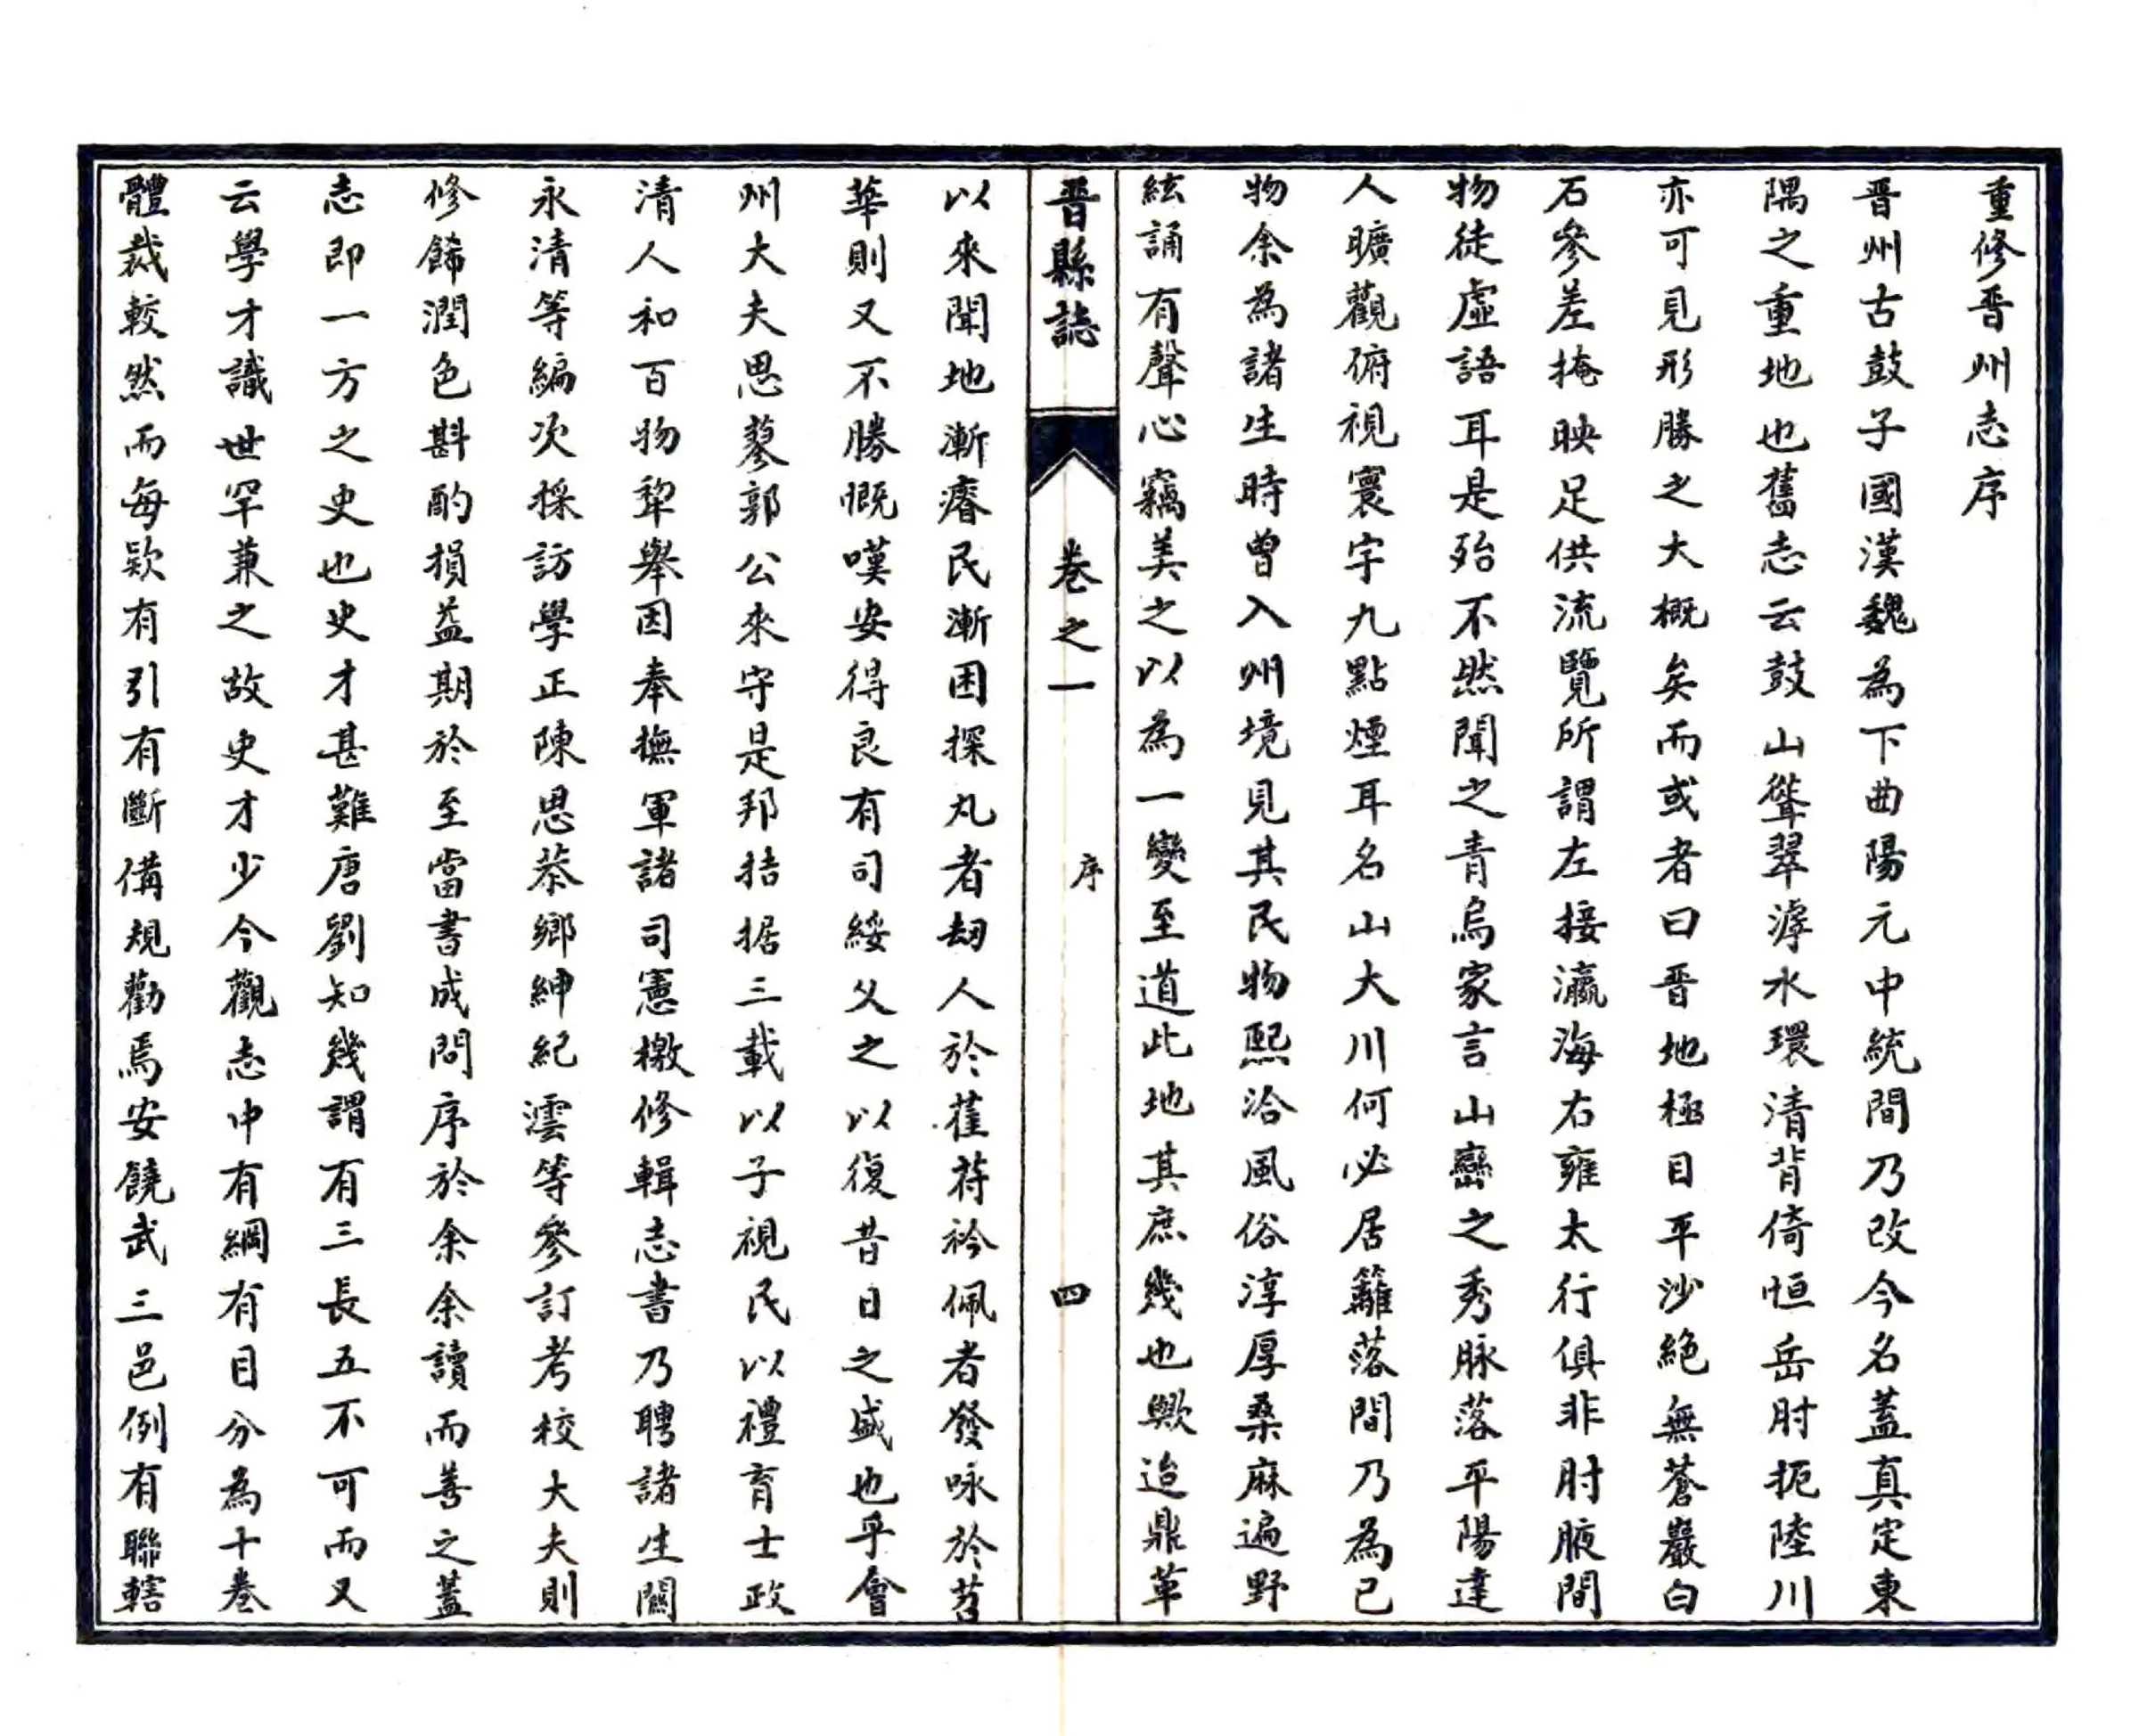 重修晋州志序
晋州古鼓子國漢魏為下曲陽元中統間乃改今名蓋真定東
隅之重地也舊志云鼓山聳翠滹水環清背倚恒岳肘扼陸川
亦可見形勝之大概矣而或者曰晋地極目平沙絶無蒼巖白
石參差掩映足供流覽所謂左接瀛海右雍太行俱非肘腋間
物徒虛語耳是殆不然聞之青烏家言山巒之秀脉落平陽達
人曠觀俯視寰宇九點煙耳名山大川何必居籬落間乃為已
物余為諸生時曾入州境見其民物熙洽風俗淳厚桑麻遍野
絃誦有聲心竊美之以為一變至道此地其庶幾也歟迨鼎革
晋縣誌
卷之一
序
四
以來聞地漸瘠民漸困探丸者刼人於萑苻衿佩者發咏於苕
華則又不勝慨嘆安得良有司綏父之以復昔日之盛也乎會
州大夫思蓼郭公來守是邦拮据三載以子視民以禮育士政
清人和百物犂舉因奉撫軍諸司憲檄修輯志書乃聘諸生闗
永清等編次採訪學正陳思恭鄉紳紀澐等參訂考校大夫則
修餙潤色斟酌損益期於至當書成問序於余余讀而善之蓋
志即一方之史也史才甚難唐劉知幾謂有三長五不可而又
云學才識世罕兼之故史才少今觀志中有綱有目分為十卷
體裁較然而每欵有引有斷備規勸焉安饒武三邑例有聯轄